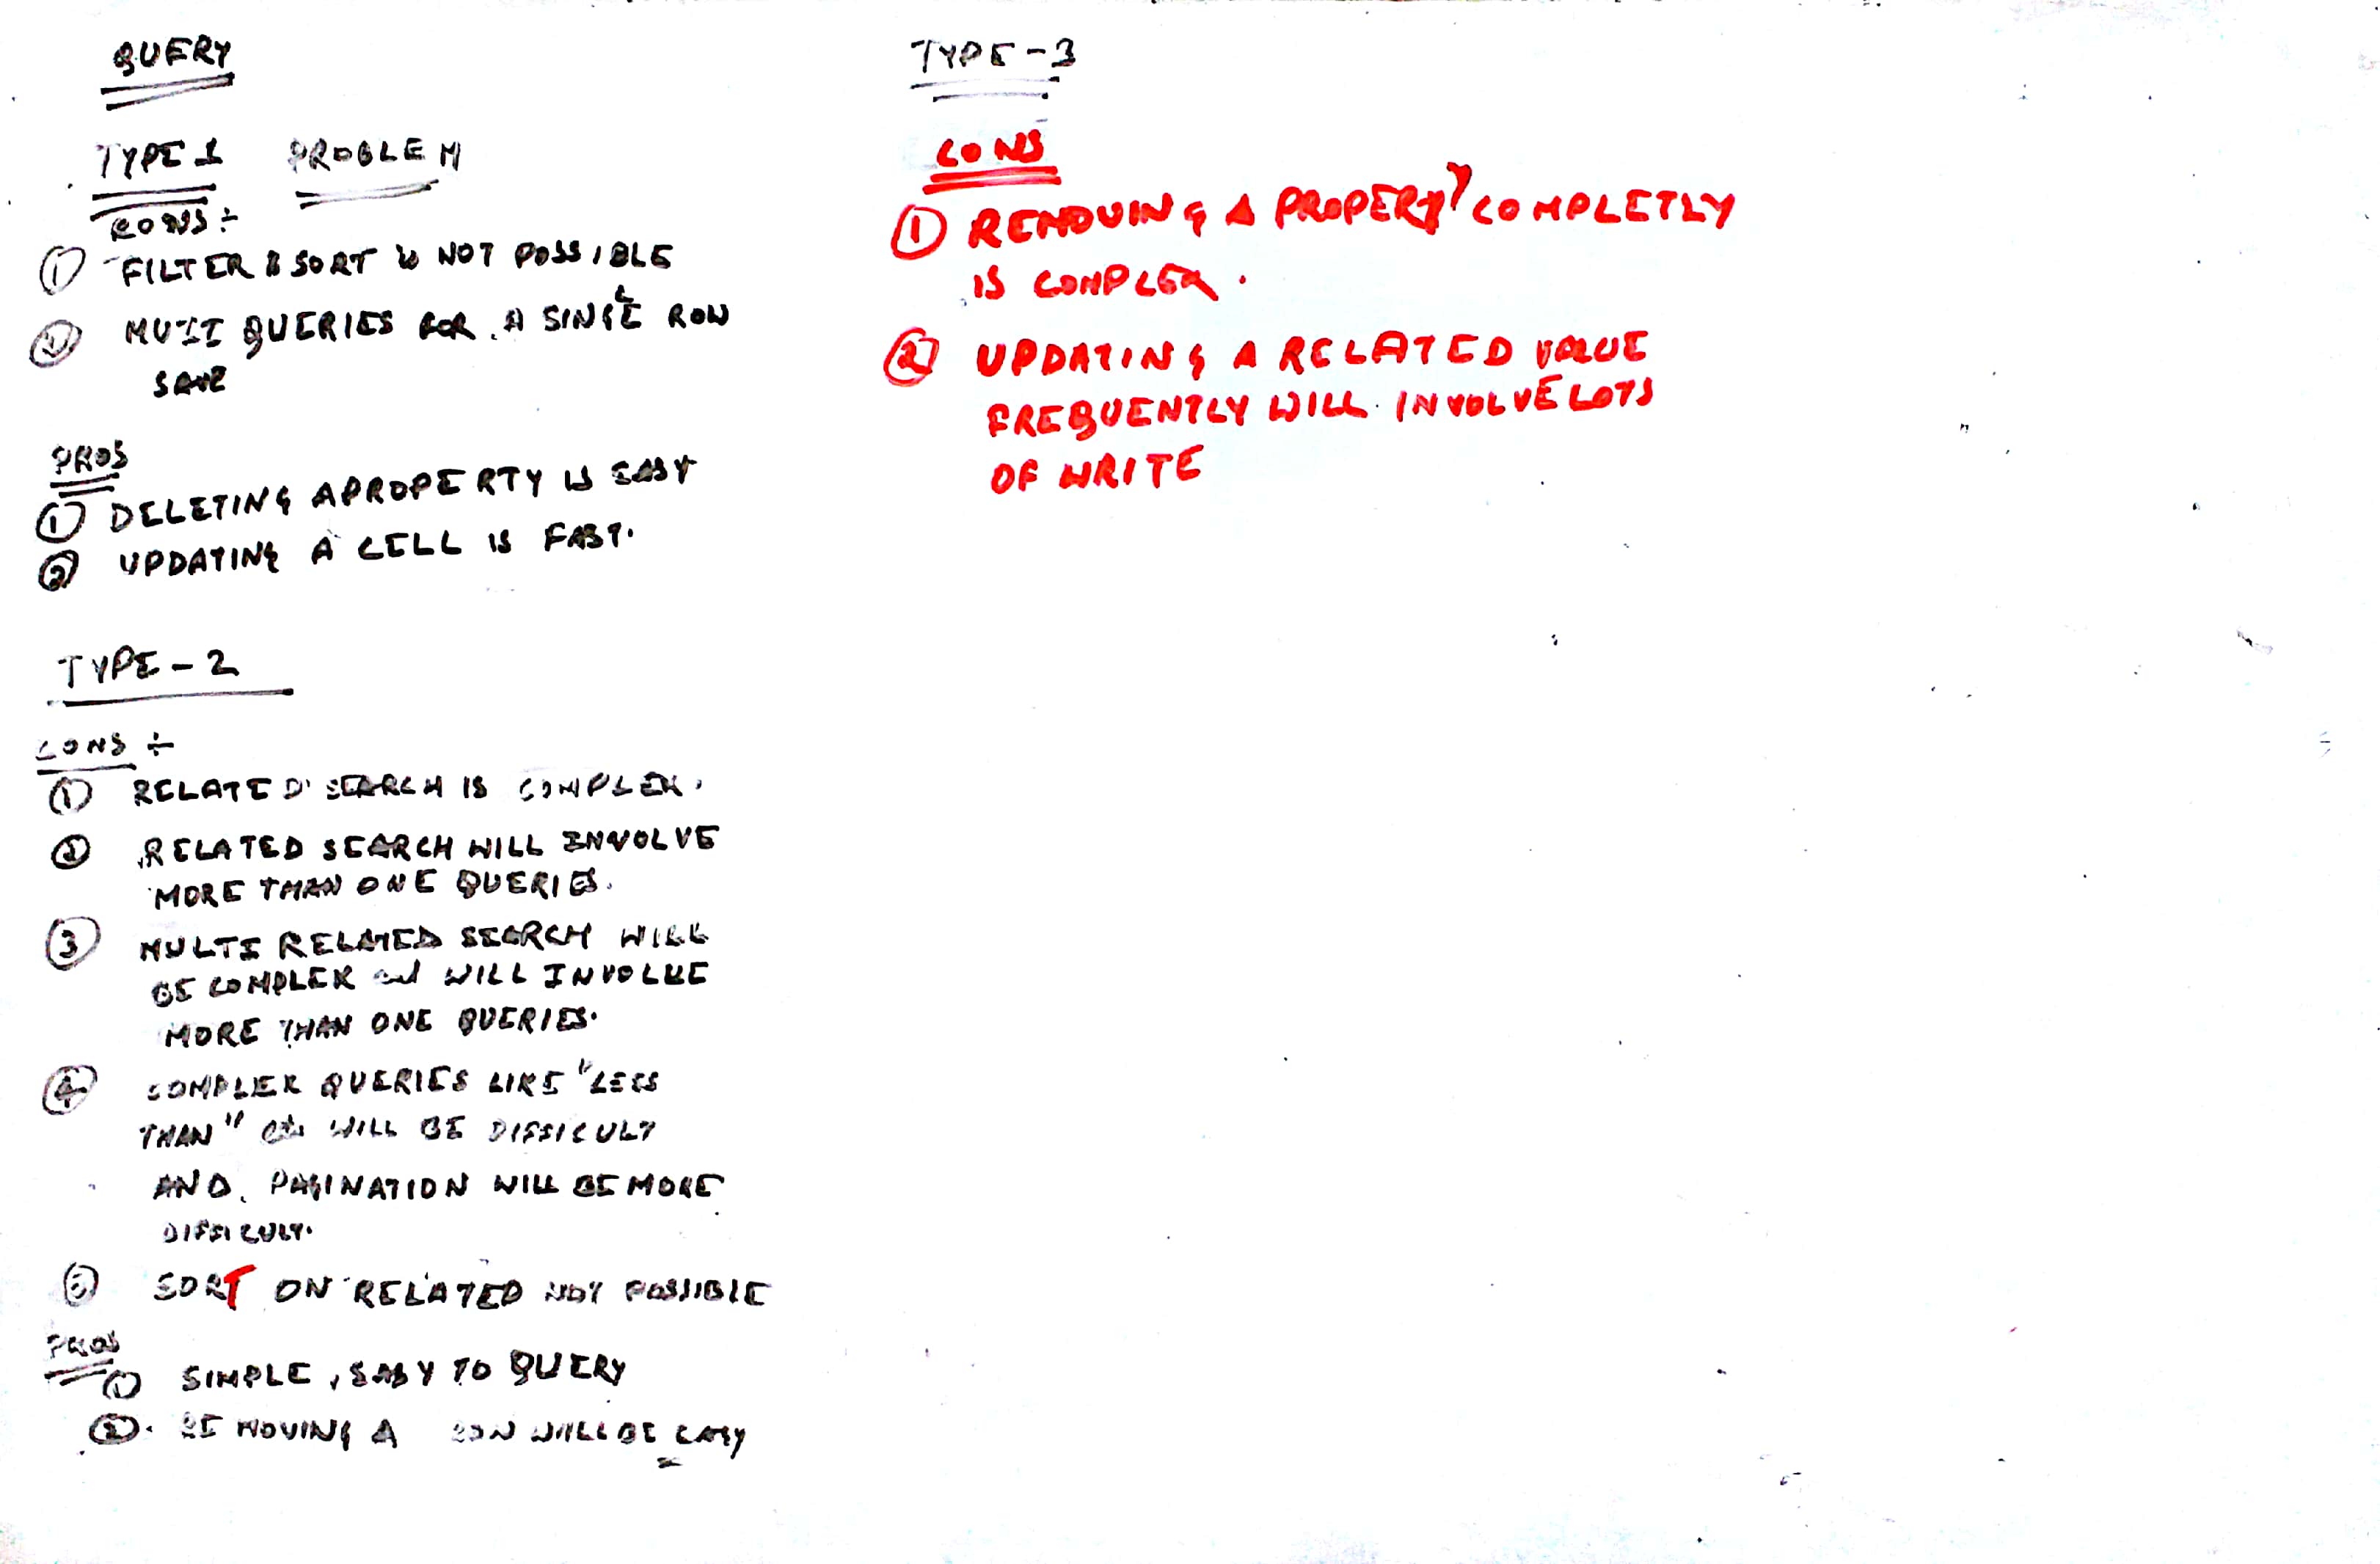 QUERY
TYPE 1 PROBLEM
CONS ÷
① FILTER & SORT is NOT POSSIBLE
② MUTI QUERIES FOR A SINGLE ROW
SAVE
PROS
① DELETING A PROPERTY IS EASY
② UPDATING A CELL IS FAST.
TYPE - 2
CONS ÷
① RELATED SEARCH IS COMPLEX.
② RELATED SEARCH WILL INVOLVE
MORE THAN ONE QUERIES.
③ MULTI RELATED SEARCH WILL
BE COMPLEX and WILL INVOLVE
MORE THAN ONE QUERIES.
④ COMPLEX QUERIES LIKE "LESS
THAN" etc WILL BE DIFFICULT
AND PAGINATION WILL BE MORE
DIFFICULT.
⑤ SORT ON RELATED NOT POSSIBLE
PROS
① SIMPLE, EASY TO QUERY
② REMOVING A ROW WILL BE EASY
TYPE - 3
CONS
① REMOVING A PROPERTY COMPLETLY
IS COMPLEX.
② UPDATING A RELATED VALUE
FREQUENTLY WILL INVOLVE LOTS
OF WRITE